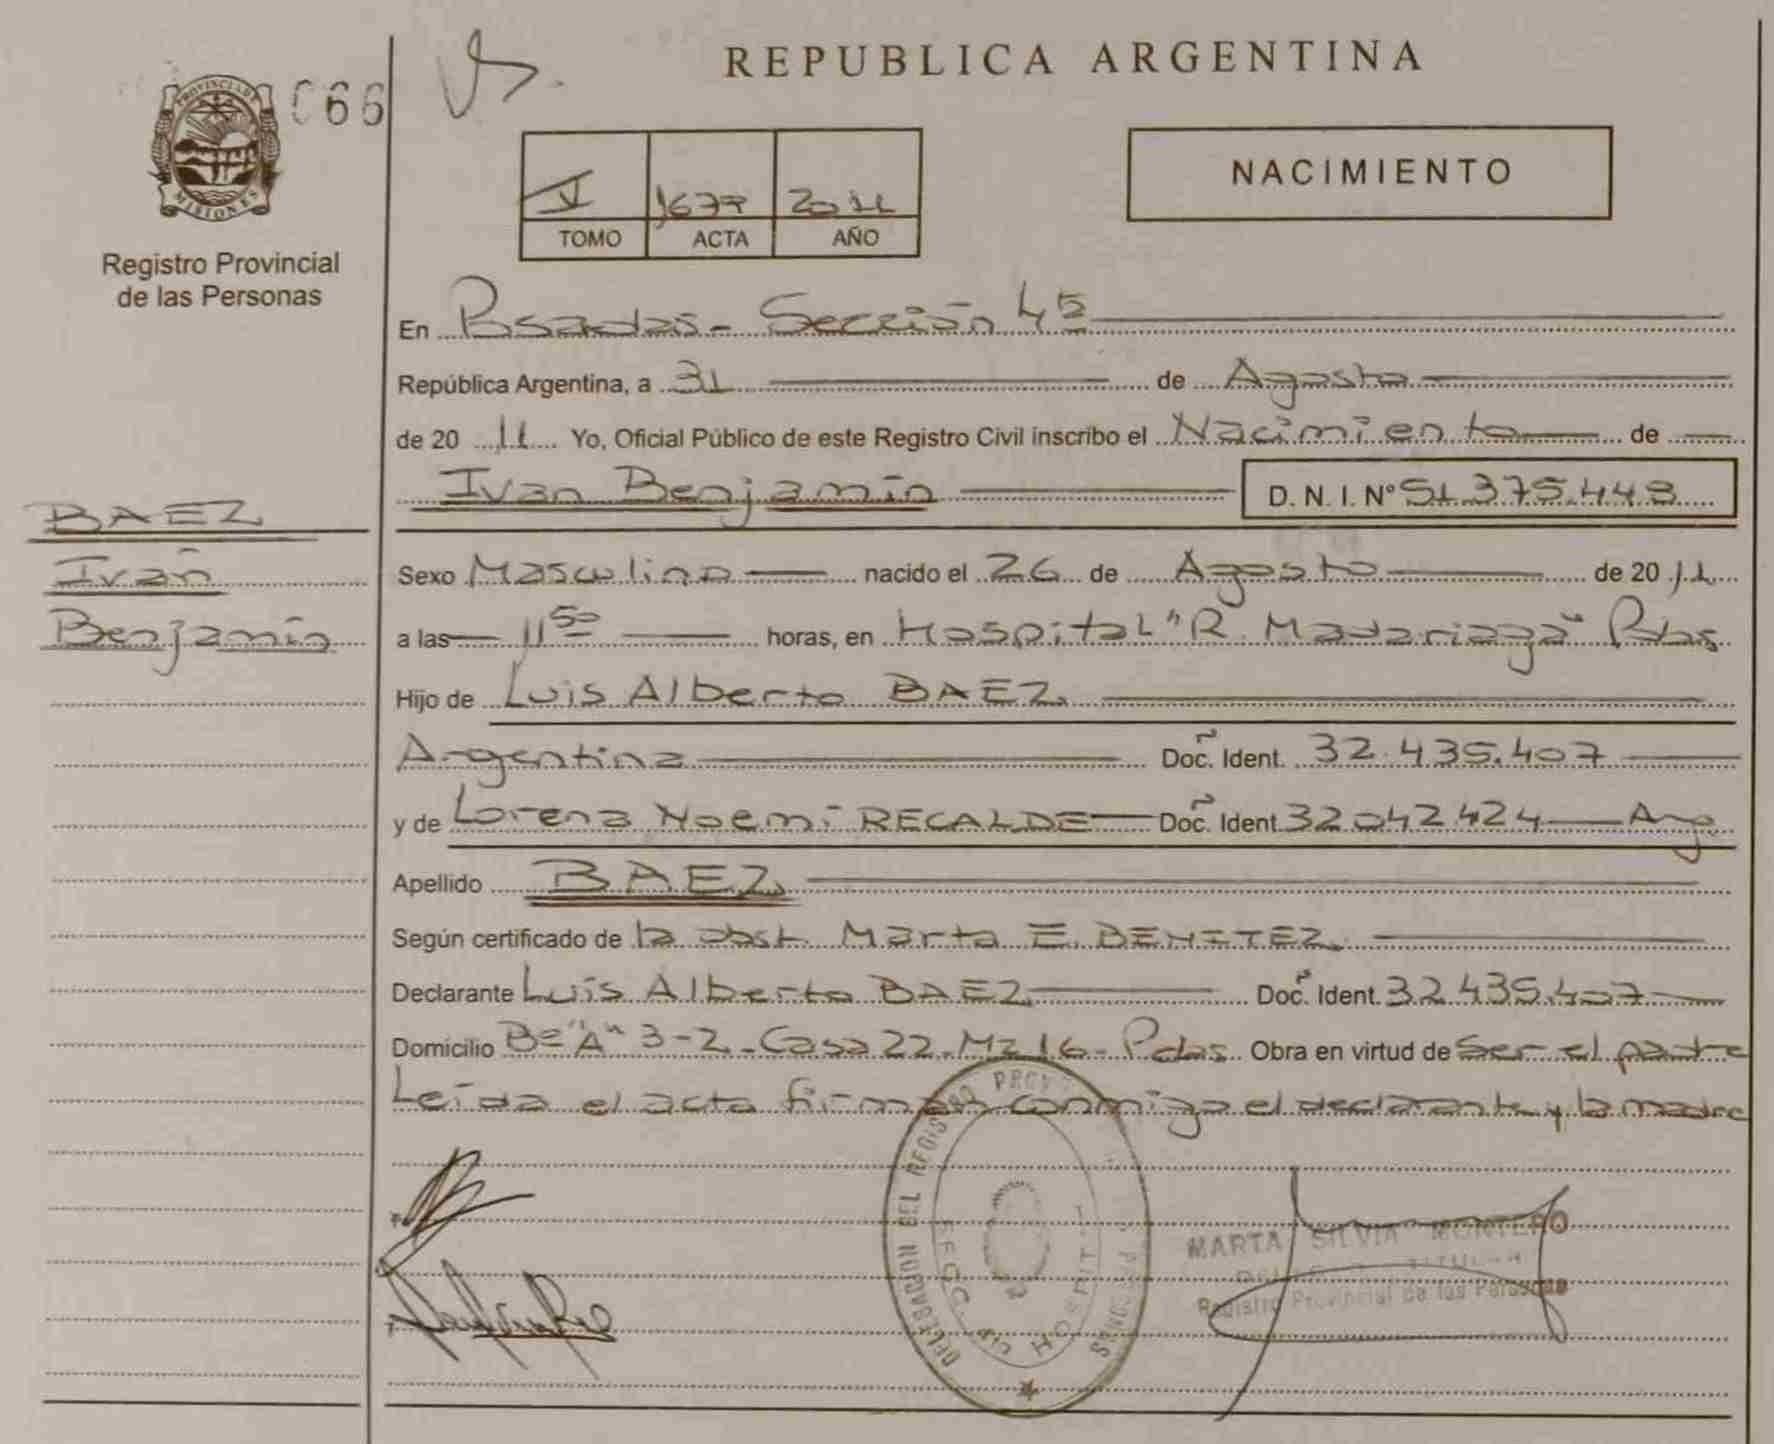 REPUBLICA ARGENTINA
PROVINCIA DE
MISIONES
066
Registro Provincial
de las Personas
V 1677 2011
TOMO ACTA AÑO
NACIMIENTO
En Posadas - Sección 4ª
República Argentina, a 31 de Agosto
de 20 11 Yo, Oficial Público de este Registro Civil inscribo el Nacimiento de
Ivan Benjamín D. N. I. Nº 51.375.448
BAEZ
Iván
Benjamín
Sexo Masculino nacido el 26 de Agosto de 20 11
a las 11 50 horas, en Hospital "R. Madariaga" Pdas
Hijo de Luis Alberto BAEZ
Argentina Doc. Ident. 32.435.407
y de Lorena Noemi RECALDE Doc. Ident. 32042424 Arg
Apellido BAEZ
Según certificado de la obst. Marta E. BENITEZ
Declarante Luis Alberto BAEZ Doc. Ident. 32.435.407
Domicilio Bº "A" 3-2 - Casa 22 - Mz 16 - Pdas. Obra en virtud de Ser el padre
Leída el acta firman conmigo el declarante y la madre
DELEGACION DEL REGISTRO PROV PERSONAS
SECC. HOSPITAL
MARTA SILVIA MONTERO
TITULAR
Registro Provincial de las Personas